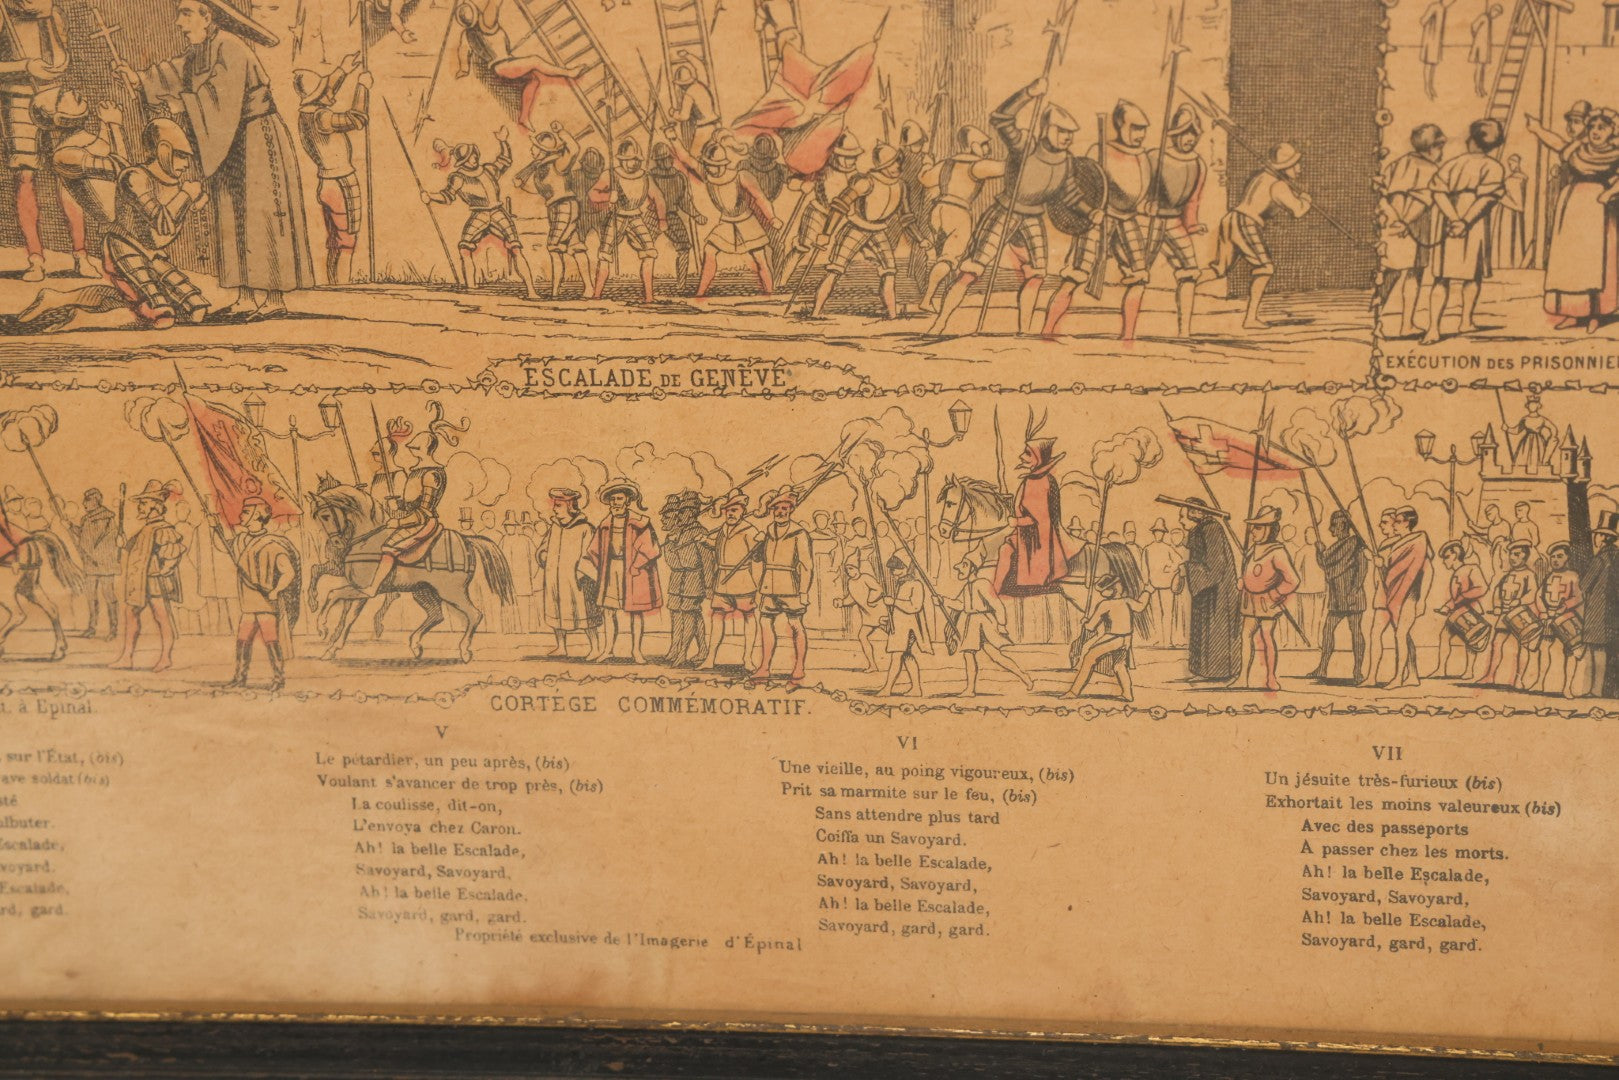 ESCALADE DE GENÈVE
EXÉCUTION DES
CORTÉGE COMMÉMORATIF.
à Epinal.
sur l'État, (bis)
soldat (bis)
Escalade,
Escalade,
gard.
V
Le pétardier, un peu après, (bis)
Voulant s'avancer de trop près, (bis)
La coulisse, dit-on,
L'envoya chez Caron.
Ah! la belle Escalade,
Savoyard, Savoyard,
Ah! la belle Escalade,
Savoyard, gard, gard.
Propriété exclusive de l'Imagerie d'Épinal
VI
Une vieille, au poing vigoureux, (bis)
Prit sa marmite sur le feu, (bis)
Sans attendre plus tard
Coiffa un Savoyard.
Ah! la belle Escalade,
Savoyard, Savoyard,
Ah! la belle Escalade,
Savoyard, gard, gard.
VII
Un jésuite très-furieux (bis)
Exhortait les moins valeureux (bis)
Avec des passeports
A passer chez les morts.
Ah! la belle Escalade,
Savoyard, Savoyard,
Ah! la belle Escalade,
Savoyard, gard, gard.